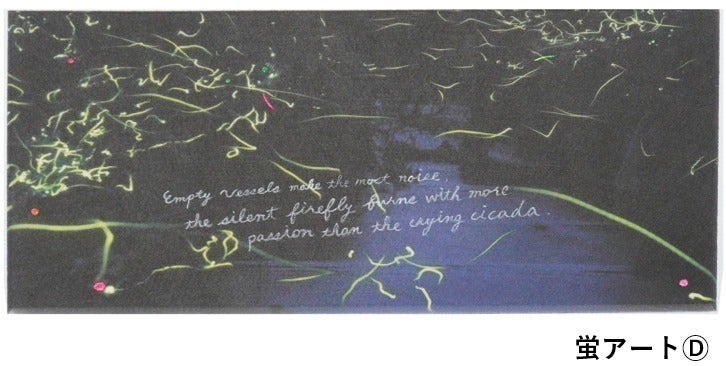 Empty vessels make the most noise.
the silent firefly burns with more
passion than the crying cicada.
蛍アートⒹ